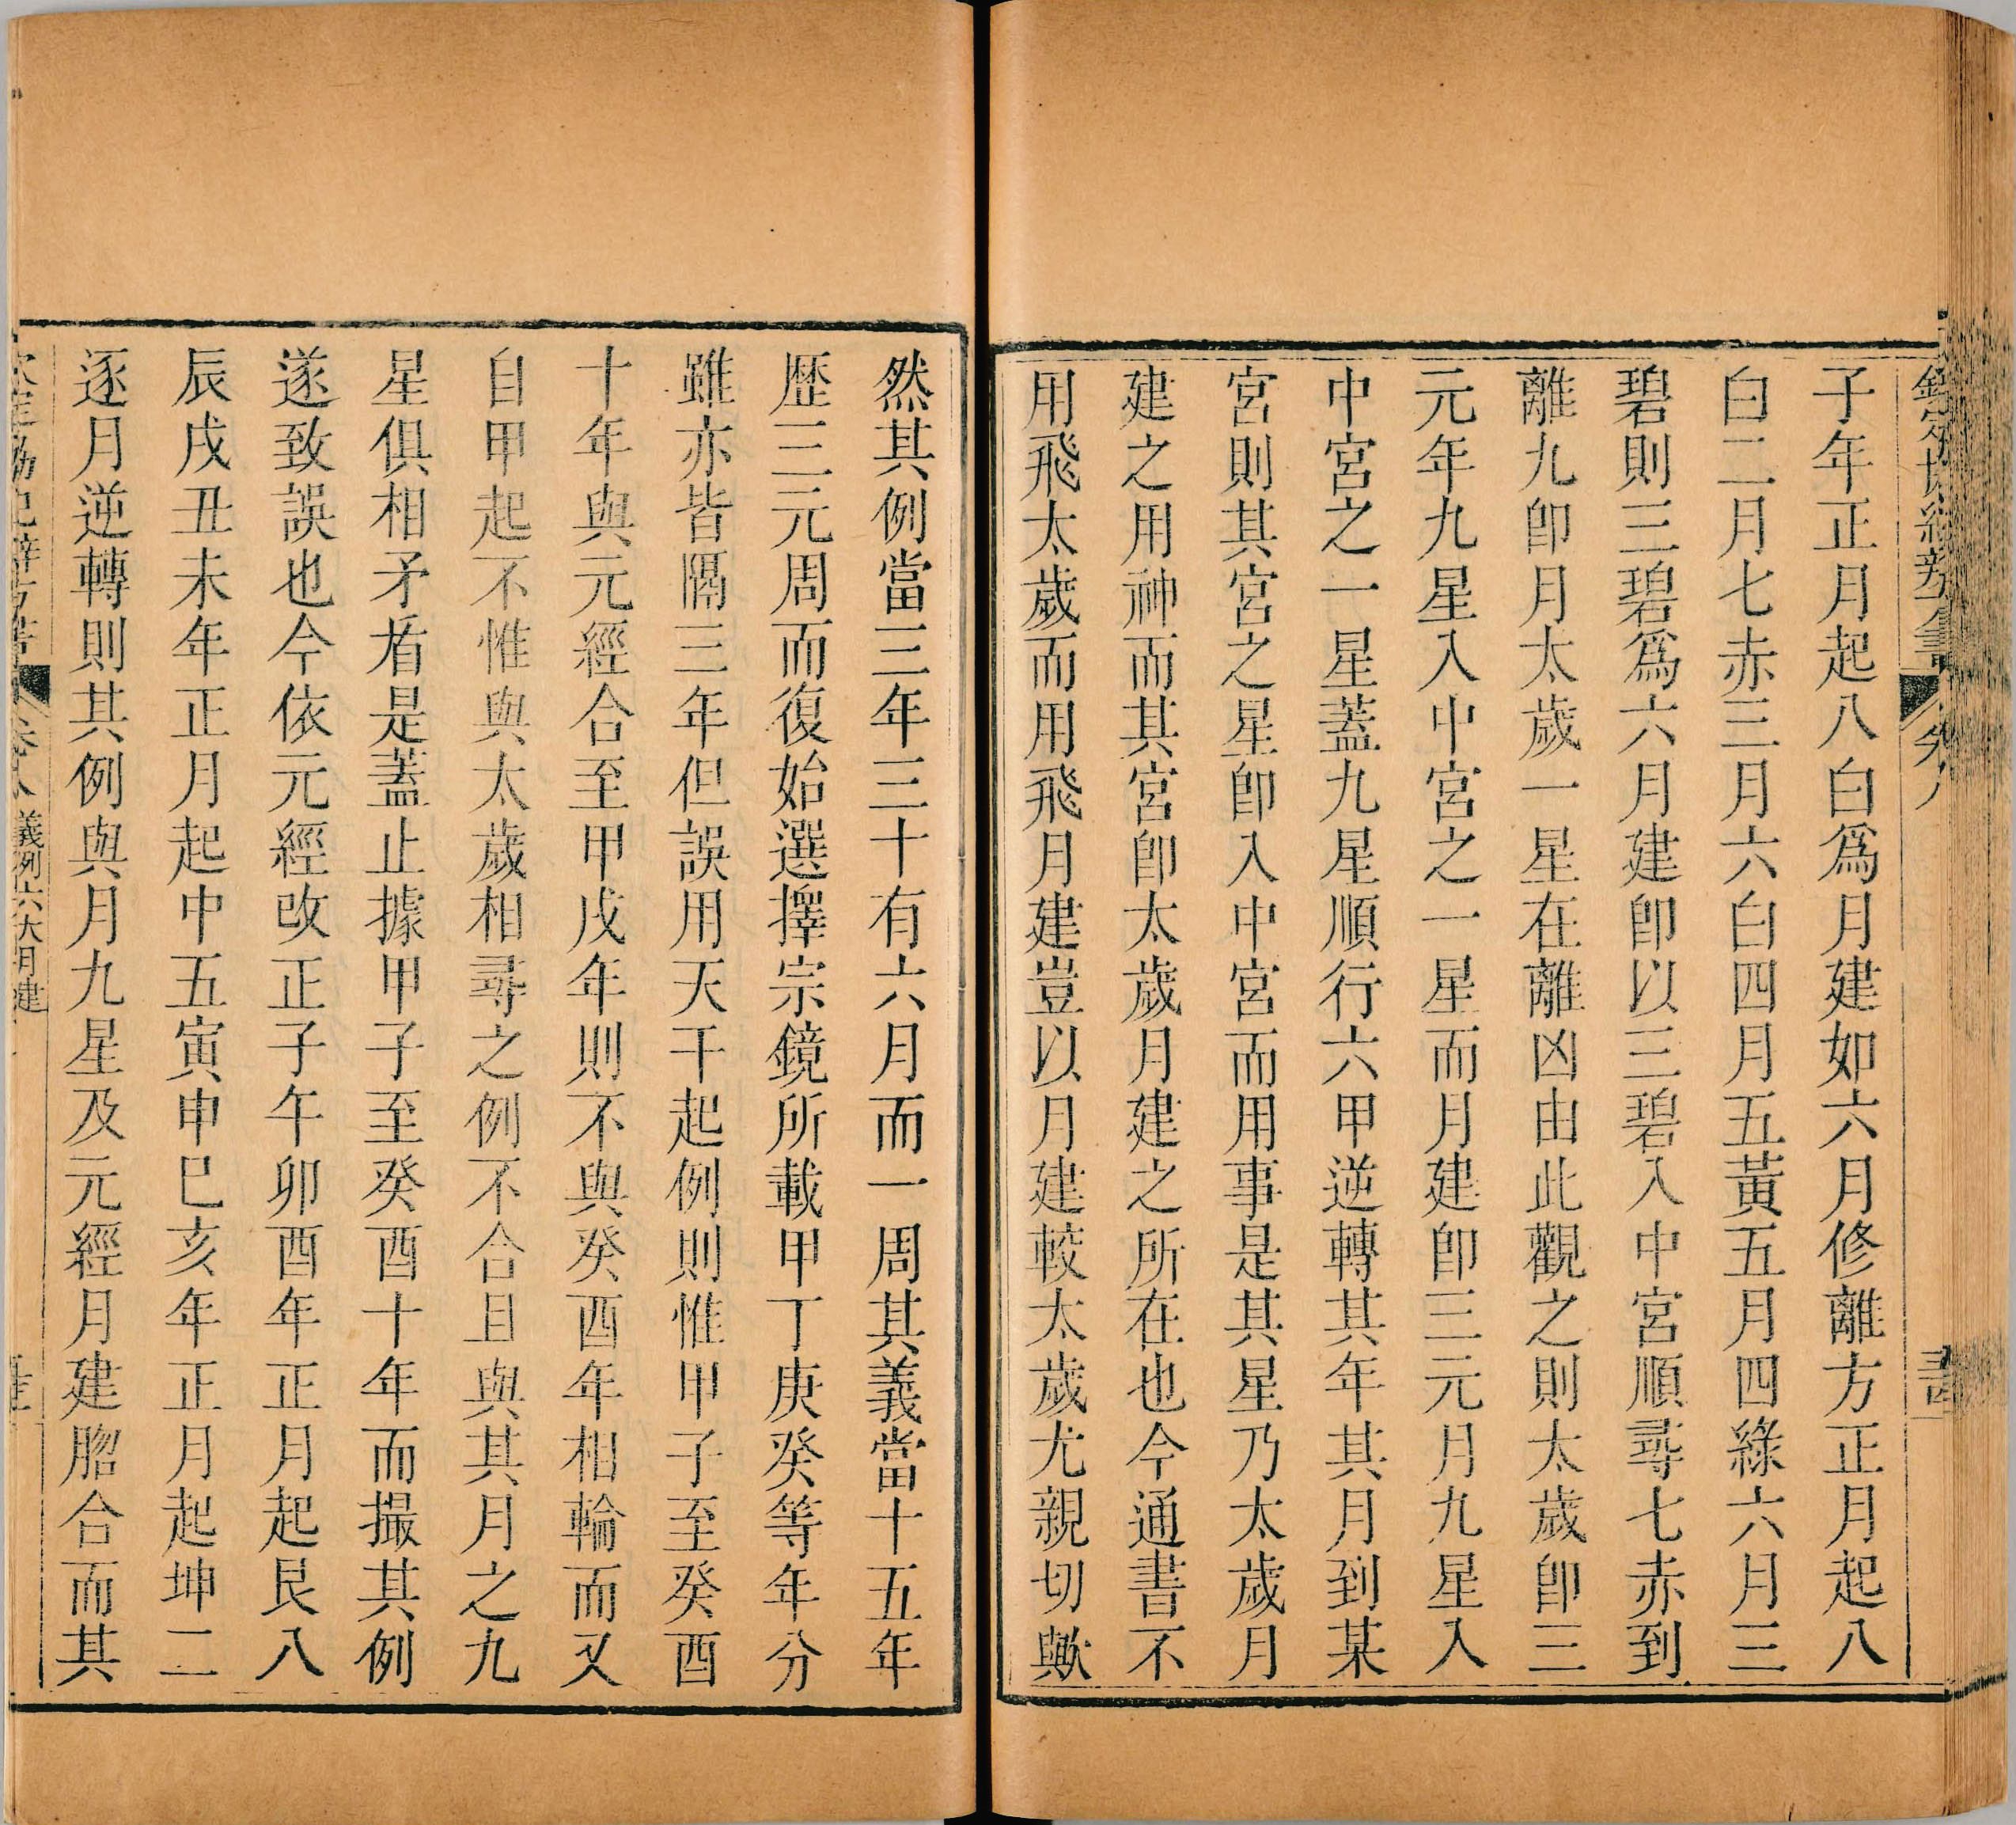 子年正月起八白爲月建如六月修離方正月起八
白二月七赤三月六白四月五黃五月四綠六月三
碧則三碧爲六月建卽以三碧入中宮順尋七赤到
離九卽月太歲一星在離凶由此觀之則太歲卽三
元年九星入中宮之一星而月建卽三元月九星入
中宮之一星蓋九星順行六甲逆轉其年其月到某
宮則其宮之星卽入中宮而用事是其星乃太歲月
建之用神而其宮卽太歲月建之所在也今通書不
用飛太歲而用飛月建豈以月建較太歲尤親切歟
然其例當三年三十有六月而一周其義當十五年
歷三元周而復始選擇宗鏡所載甲丁庚癸等年分
雖亦皆隔三年但誤用天干起例則惟甲子至癸酉
十年與元經合至甲戌年則不與癸酉年相輪而又
自甲起不惟與太歲相尋之例不合且與其月之九
星俱相矛盾是蓋止據甲子至癸酉十年而撮其例
遂致誤也今依元經改正子午卯酉年正月起艮八
辰戌丑未年正月起中五寅申巳亥年正月起坤二
逐月逆轉則其例與月九星及元經月建脗合而其
義例六大月建